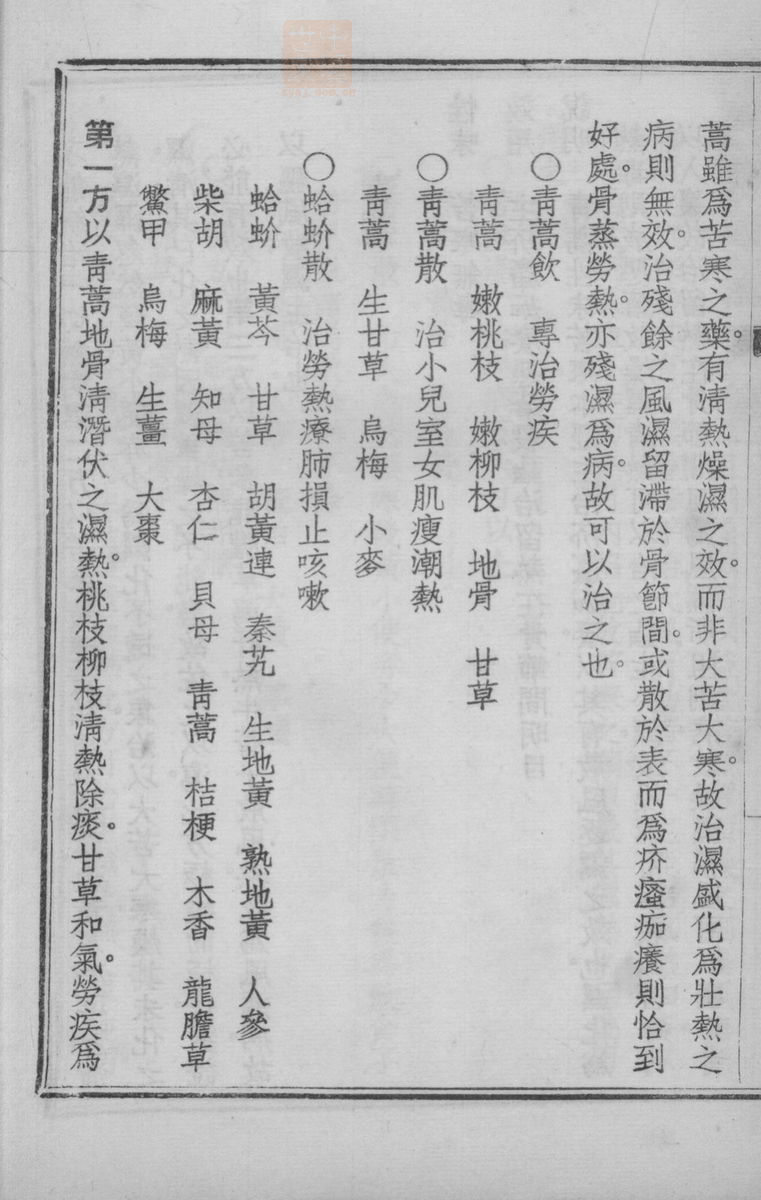 蒿雖爲苦寒之藥。有淸熱燥濕之效。而非大苦大寒。故治濕盛化爲壯熱之
病則無效。治殘餘之風濕留滯於骨節間。或散於表而爲疥瘙痂癢則恰到
好處。骨蒸勞熱。亦殘濕爲病。故可以治之也。
〇靑蒿飮　專治勞疾
靑蒿　嫩桃枝　嫩柳枝　地骨　甘草
〇靑蒿散　治小兒室女肌瘦潮熱
靑蒿　生甘草　烏梅　小麥
〇蛤蚧散　治勞熱療肺損止咳嗽
蛤蚧　黃芩　甘草　胡黃連　秦艽　生地黃　熟地黃　人參
柴胡　麻黃　知母　杏仁　貝母　靑蒿　桔梗　木香　龍膽草
鱉甲　烏梅　生薑　大棗
第一方以靑蒿地骨淸潛伏之濕熱。桃枝柳枝淸熱除痰。甘草和氣。勞疾爲